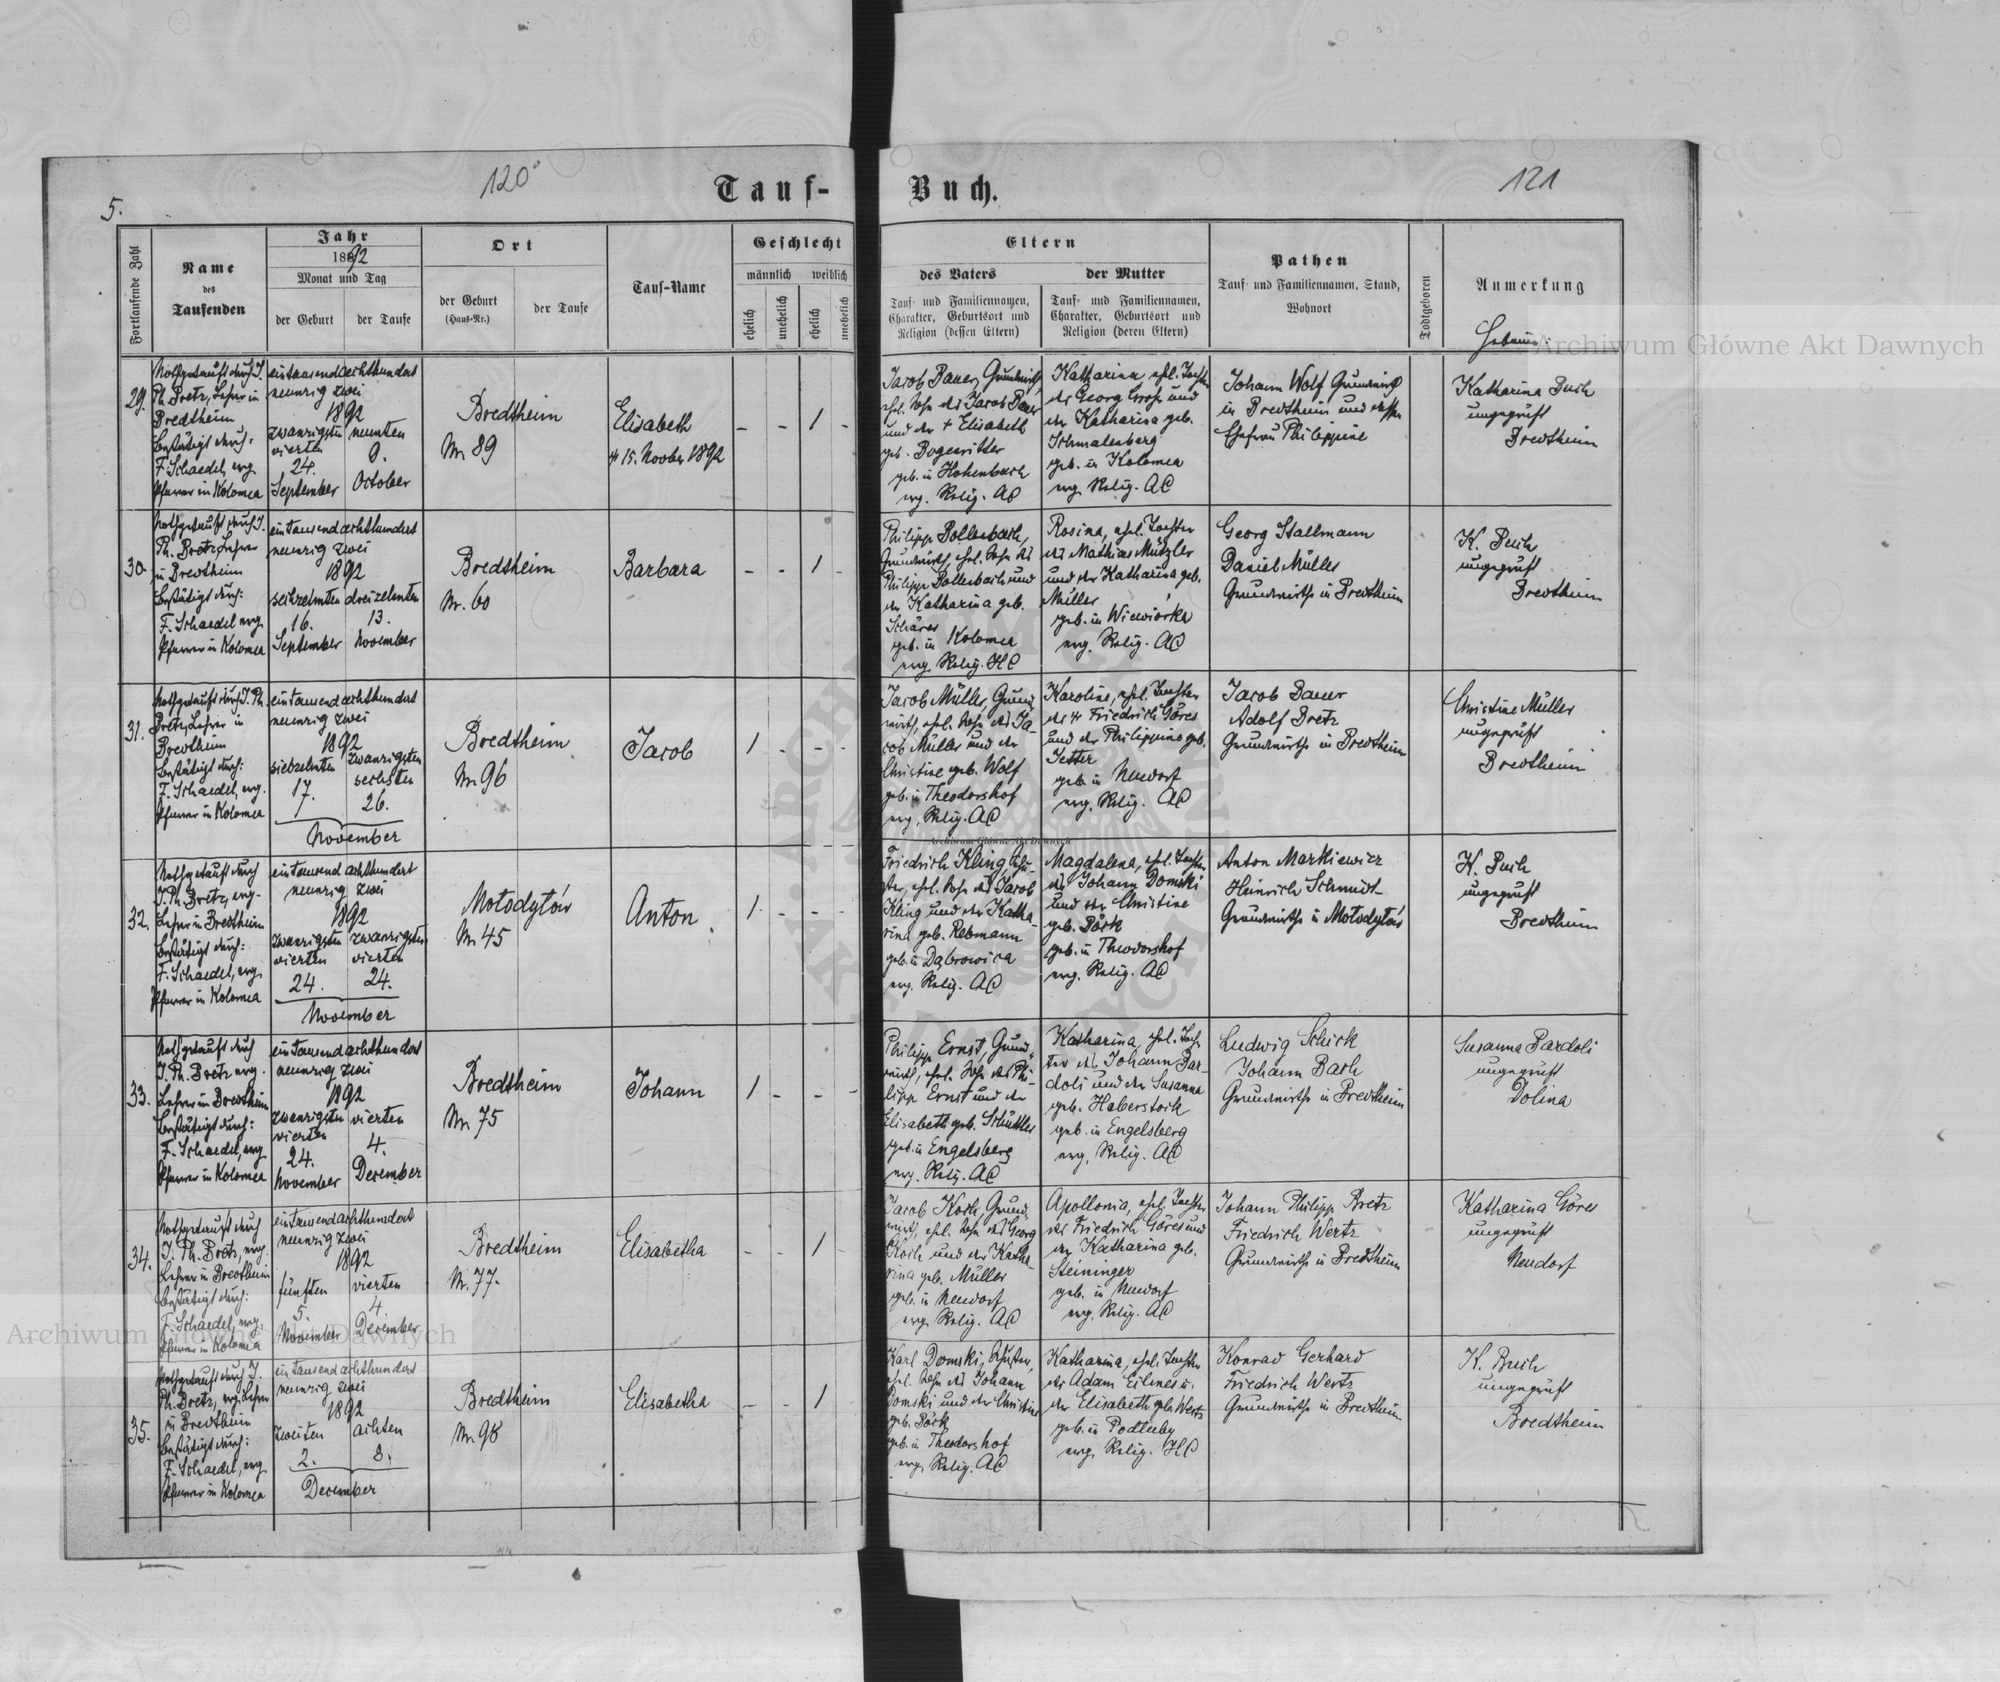 120
121
5.
Tauf-
Buch.
Fortlaufende Zahl
Name
des
Taufenden
Jahr
1892
Monat und Tag
der Geburt
der Taufe
Ort
der Geburt
(Haus-Nr.)
der Taufe
Tauf-Name
Geschlecht
männlich
weiblich
ehelich
unehelich
ehelich
unehelich
Eltern
des Vaters
Tauf- und Familiennamen,
Charakter, Geburtsort und
Religion (dessen Eltern)
der Mutter
Tauf- und Familiennamen,
Charakter, Geburtsort und
Religion (deren Eltern)
Pathen
Tauf- und Familiennamen, Stand,
Wohnort
Todtgeboren
Anmerkung
29.
Nothgetauft durch J.
Ph. Bretz, Lehrer in
Bredtheim
Bestätigt durch:
F. Schaedel, evg.
Pfarrer in Kolomea
eintausendachthundert
neunzig zwei
1892
zwanzigsten
vierten
24.
September
neunten
9.
October
Bredtheim
Nr. 89
Elisabeth
† 15. Novber 1892
- - 1 -
Jacob Bauer, Grundwirth,
ehl. Sohn des Jacob Bauer
und der † Elisabeth
geb. Bogenritter
geb. in Hohenbach
evg. Relig. AC
Katharina, ehl. Tochter
des Georg Gross und
der Katharina geb.
Schmalenberg
geb. in Kolomea
evg. Relig. AC
Johann Wolf Grundwirth
in Bredtheim und dessen
Ehefrau Philippine
Katharina Buch
ungeprüft
Bredtheim
30.
Nothgetauft durch J.
Ph. Bretz Lehrer
in Bredtheim
Bestätigt durch:
F. Schaedel evg.
Pfarrer in Kolomea
eintausendachthundert
neunzig zwei
1892
sechzehnten
16.
September
dreizehnten
13.
November
Bredtheim
Nr. 60
Barbara
- - 1 -
Philipp Bollenbach,
Grundwirth, ehl. Sohn des
Philipp Bollenbach und
der Katharina geb.
Schärer
geb. in Kolomea
evg. Relig. HC
Rosina, ehl. Tochter
des Mathias Mützler
und der Katharina geb.
Müller
geb. in Wiewiórka
evg. Relig. AC
Georg Stallmann
Daniel Müller
Grundwirthe in Bredtheim
K. Buch
ungeprüft
Bredtheim
31.
Nothgetauft durch J. Ph.
Bretz Lehrer in
Bredtheim
Bestätigt durch:
F. Schaedel, evg.
Pfarrer in Kolomea
eintausendachthundert
neunzig zwei
1892
siebzehnten
17.
zwanzigsten
sechsten
26.
November
Bredtheim
Nr. 96
Jacob
1 - - -
Jacob Müller, Grund-
wirth, ehl. Sohn des Ja-
cob Müller und der
Christine geb. Wolf
geb. in Theodorshof
evg. Relig. AC
Karoline, ehl. Tochter
des † Friedrich Göres
und der Philippine geb.
Jetter
geb. in Neudorf
evg. Relig. AC
Jacob Bauer
Adolf Bretz
Grundwirthe in Bredtheim
Christine Müller
ungeprüft
Bredtheim
32.
Nothgetauft durch
J. Ph. Bretz, evg.
Lehrer in Bredtheim
Bestätigt durch:
F. Schaedel, evg.
Pfarrer in Kolomea
eintausend achthundert
neunzig zwei
1892
zwanzigsten
vierten
24.
zwanzigsten
vierten
24.
November
Mołodyłów
Nr. 45
Anton
1 - - -
Friedrich Kling, Schu-
ster, ehl. Sohn des Jacob
Kling und der Katha-
rina geb. Rebmann
geb. in Dąbrowica
evg. Relig. AC
Magdalena, ehl. Tochter
des Johann Domski
und der Christine
geb. Böck
geb. in Theodorshof
evg. Relig. AC
Anton Markiewicz
Heinrich Schmidt
Grundwirthe in Mołodyłów
K. Buch
ungeprüft
Bredtheim
33.
Nothgetauft durch
J. Ph. Bretz evg.
Lehrer in Bredtheim
Bestätigt durch:
F. Schaedel, evg.
Pfarrer in Kolomea
eintausendachthundert
neunzig zwei
1892
zwanzigsten
vierten
24.
November
vierten
4.
December
Bredtheim
Nr. 75
Johann
1 - - -
Philipp Ernst, Grund-
wirth, ehl. Sohn des Phi-
lipp Ernst und der
Elisabeth geb. Schüttler
geb. in Engelsberg
evg. Relig. AC
Katharina, ehl. Toch-
ter des Johann Bar-
doli und der Susanna
geb. Haberstock
geb. in Engelsberg
evg. Relig. AC
Ludwig Schick
Johann Bach
Grundwirthe in Bredtheim
Susanna Bardoli
ungeprüft
Dolina
34.
Nothgetauft durch
J. Ph. Bretz, evg.
Lehrer in Bredtheim
Bestätigt durch:
F. Schaedel, evg.
Pfarrer in Kolomea
eintausendachthundert
neunzig zwei
1892
fünften
5.
November
vierten
4.
December
Bredtheim
Nr. 77.
Elisabetha
- - 1
Jacob Koch, Grund-
wirth, ehl. Sohn des Georg
Koch und der Katha-
rina geb. Müller
geb. in Neudorf
evg. Relig. AC
Apollonia, ehl. Tochter
des Friedrich Göres und
der Katharina geb.
Steininger
geb. in Neudorf
evg. Relig. AC
Johann Philipp Bretz
Friedrich Wertz
Grundwirthe in Bredtheim
Katharina Göres
ungeprüft
Neudorf
35.
Nothgetauft durch J.
Ph. Bretz, evg. Lehrer
in Bredtheim
Bestätigt durch:
F. Schaedel, evg.
Pfarrer in Kolomea
eintausend achthundert
neunzig zwei
1892
zweiten
2.
achten
8.
December
Bredtheim
Nr. 98
Elisabetha
- - 1
Karl Domski, Schuster,
ehl. Sohn des Johann
Domski und der Christine
geb. Böck
geb. in Theodorshof
evg. Relig. AC
Katharina, ehl. Tochter
des Adam Eilmes u.
der Elisabeth geb. Wertz
geb. in Podłuby
evg. Relig. HC
Konrad Gerhard
Friedrich Wertz
Grundwirthe in Bredtheim
K. Buch
ungeprüft
Bredtheim
Archiwum Główne Akt Dawnych
Archiwum Główne Akt Dawnych
Archiwum Główne Akt Dawnych